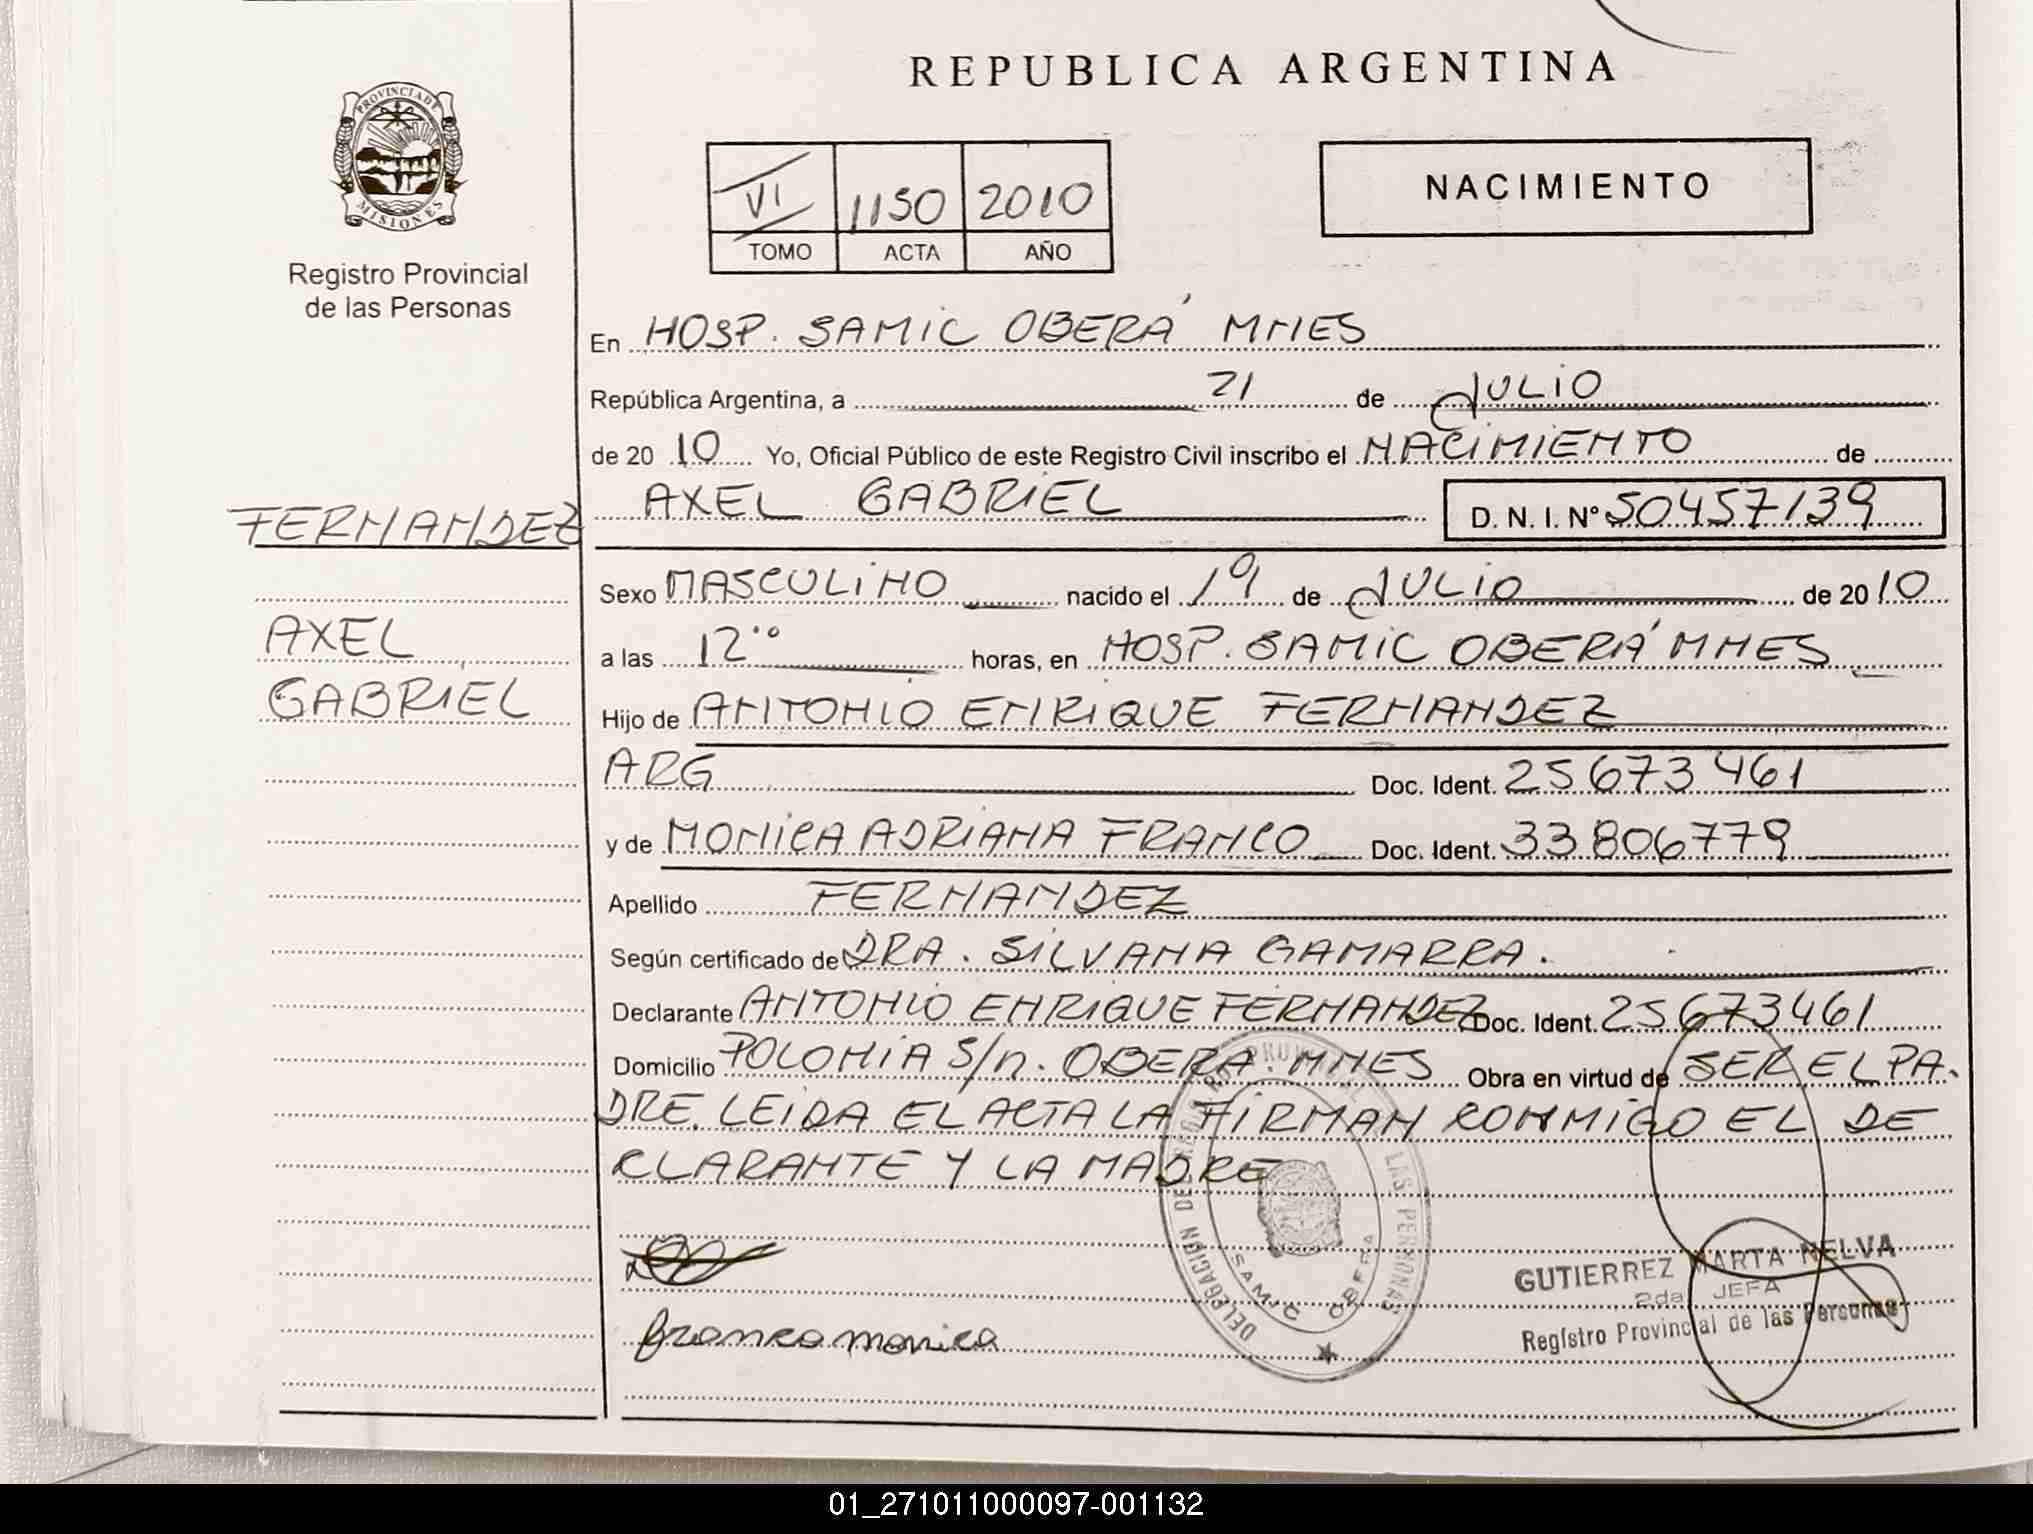 REPUBLICA ARGENTINA
PROVINCIA DE
MISIONES
Registro Provincial
de las Personas
VI 1150 2010
TOMO ACTA AÑO
NACIMIENTO
En HOSP. SAMIC OBERÁ MNES
República Argentina, a 21 de JULIO
de 20 10 Yo, Oficial Público de este Registro Civil inscribo el NACIMIENTO de
AXEL GABRIEL D. N. I. N° 50457139
FERNANDEZ
AXEL
GABRIEL
Sexo MASCULINO nacido el 19 de JULIO de 20 10
a las 12°° horas, en HOSP. SAMIC OBERÁ MNES
Hijo de ANTONIO ENRIQUE FERNANDEZ
ARG Doc. Ident. 25673461
y de MONICA ADRIANA FRANCO Doc. Ident. 33806779
Apellido FERNANDEZ
Según certificado de DRA. SILVANA GAMARRA.
Declarante ANTONIO ENRIQUE FERNANDEZ Doc. Ident. 25673461
Domicilio POLONIA S/n. OBERA. MNES Obra en virtud de SER EL PA.
DRE. LEIDA EL ACTA LA FIRMAN CONMIGO EL DE
CLARANTE Y LA MADRE
Franco monica
DELEGACION DEL REGISTRO PROVINCIAL DE LAS PERSONAS
SAMIC OBERA
GUTIERREZ MARTA NELVA
2da JEFA
Registro Provincial de las Personas
01_271011000097-001132